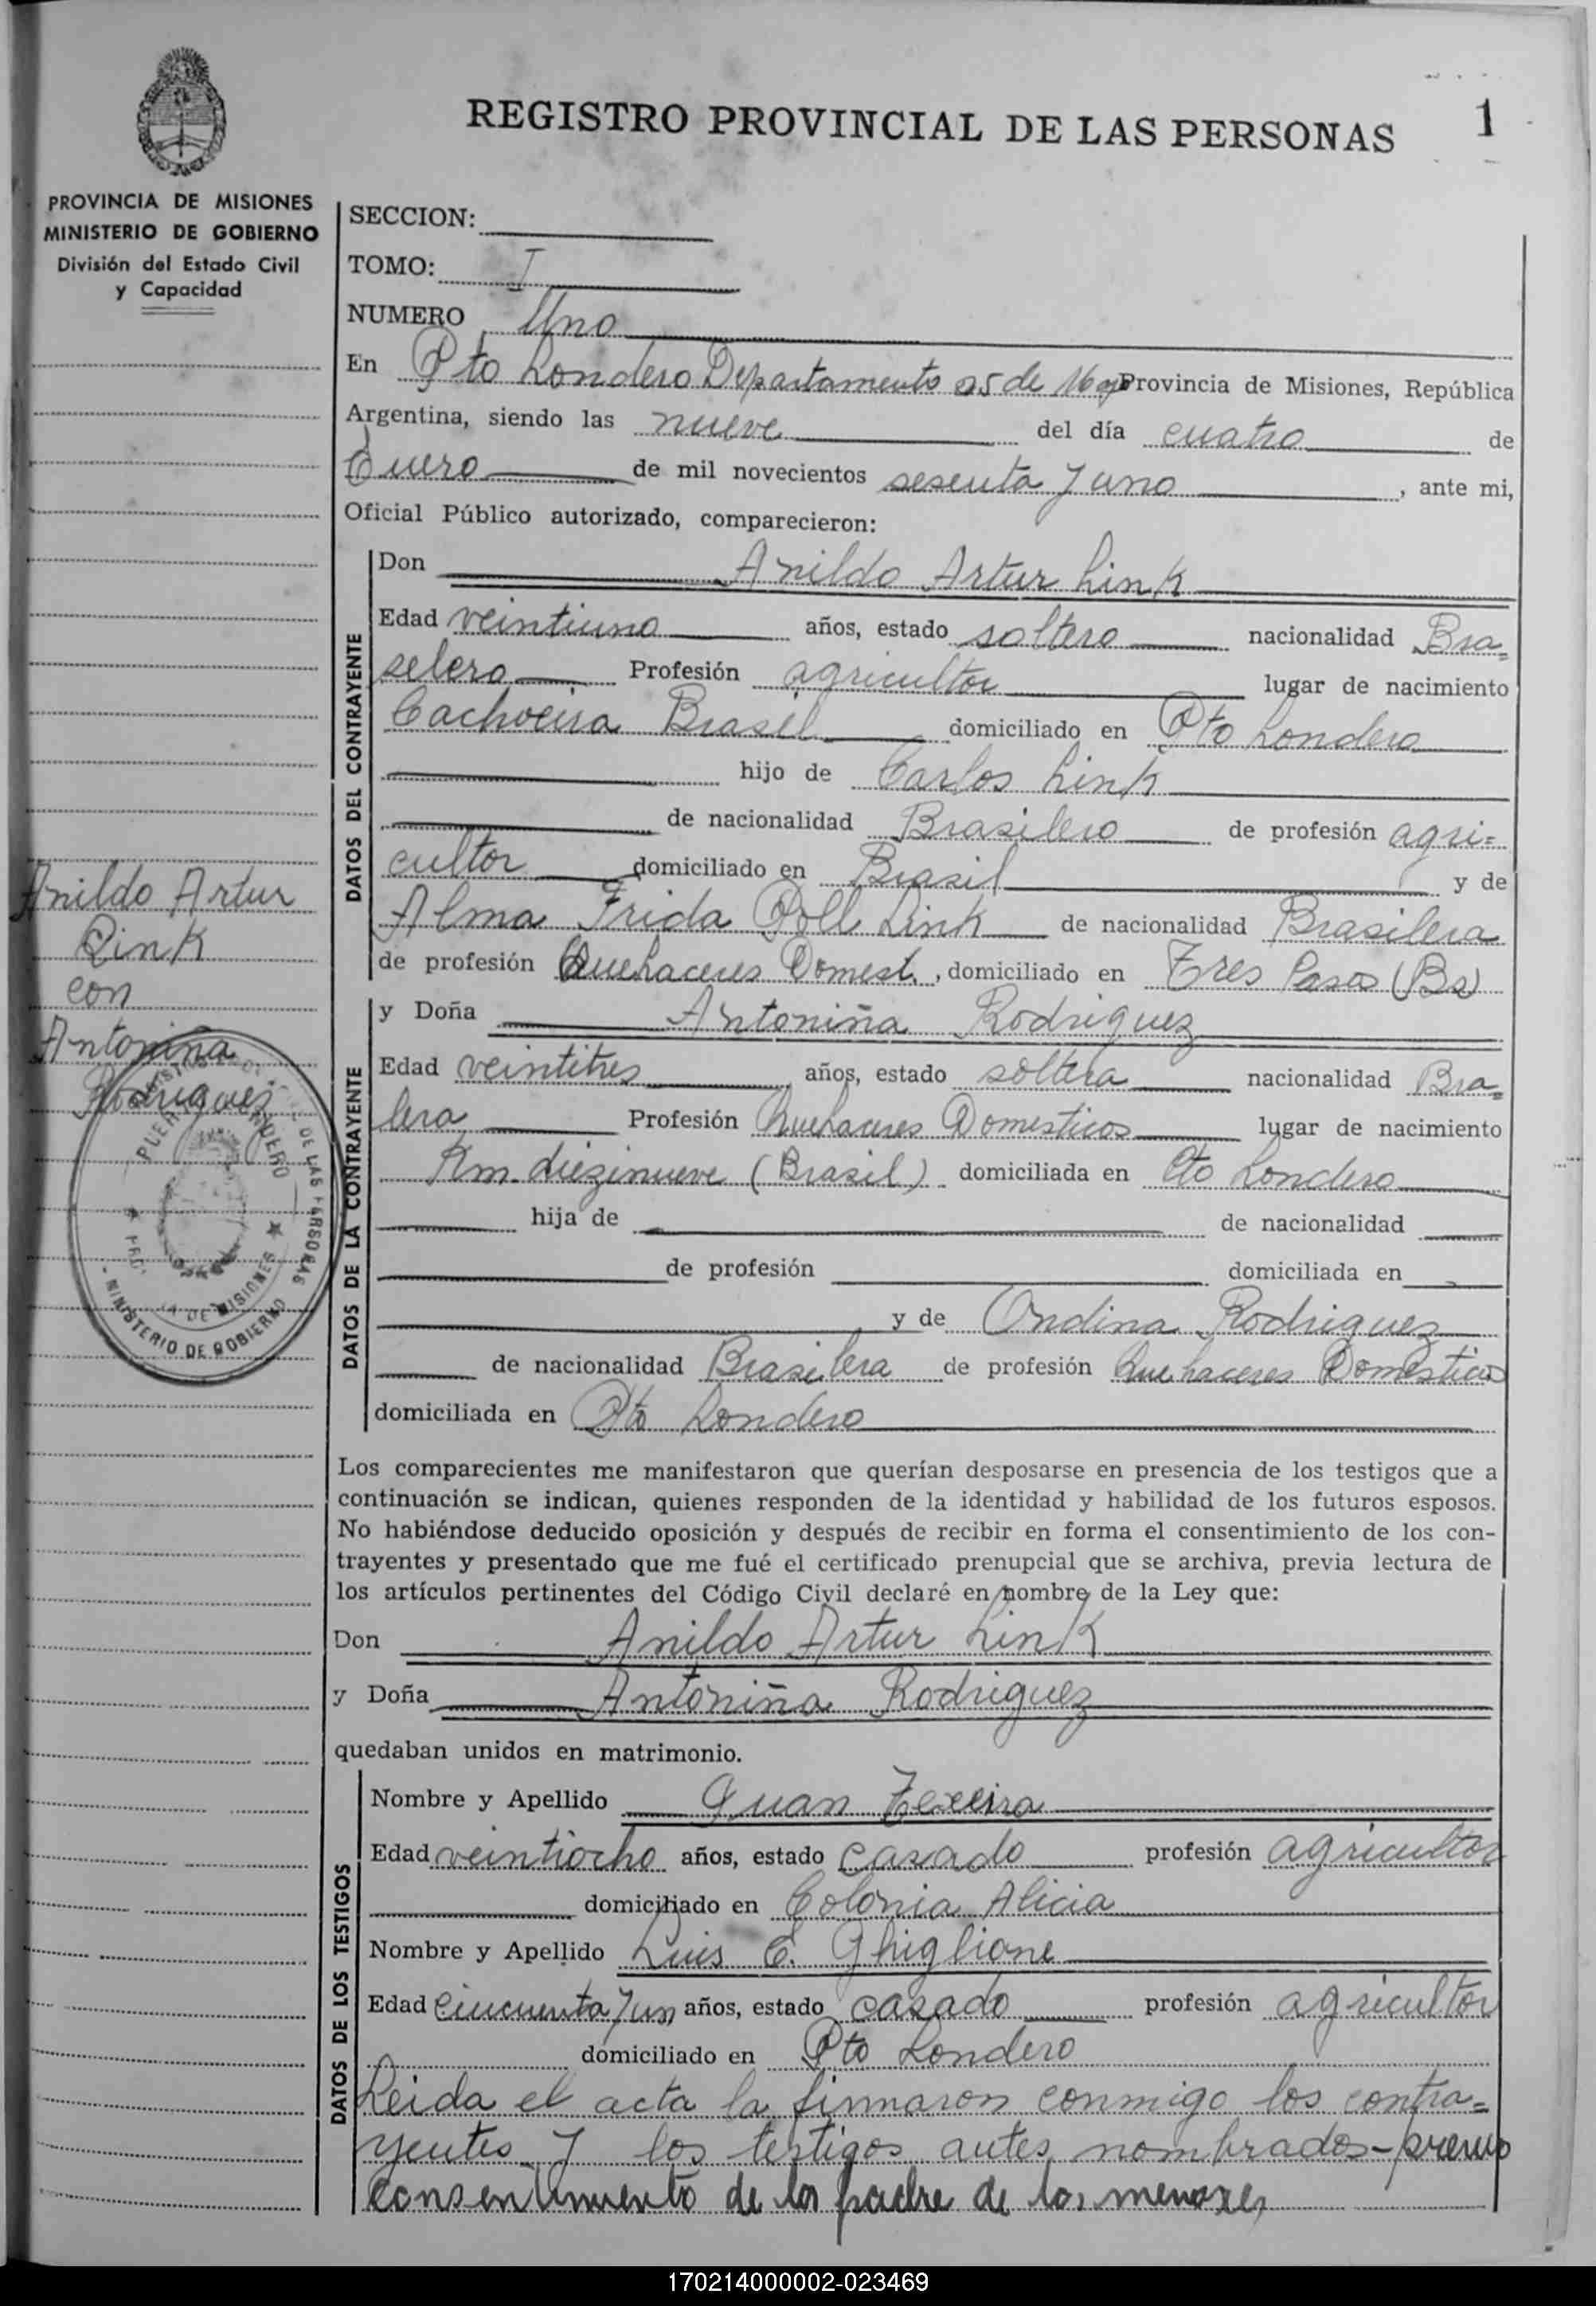 REGISTRO PROVINCIAL DE LAS PERSONAS
1
PROVINCIA DE MISIONES
MINISTERIO DE GOBIERNO
División del Estado Civil
y Capacidad
SECCION:
TOMO: I
NUMERO Uno
En Pto Londero Departamento 25 de Mayo Provincia de Misiones, República
Argentina, siendo las nueve del día cuatro de
Enero de mil novecientos sesenta y uno, ante mi,
Oficial Público autorizado, comparecieron:
DATOS DEL CONTRAYENTE
Don Anildo Artur Link
Edad veintiuno años, estado soltero nacionalidad Bra=
selero Profesión agricultor lugar de nacimiento
Cachoeira Brasel domiciliado en Pto Londero
hijo de Carlos Link
de nacionalidad Brasilero de profesión agri=
cultor domiciliado en Brasil y de
Alma Frida Poll Link de nacionalidad Brasilera
de profesión Quehaceres Domest., domiciliado en Tres Pasos (Bs)
Anildo Artur
Link
con
Antoniña
Rodriguez
DATOS DE LA CONTRAYENTE
y Doña Antoniña Rodriguez
Edad veintitres años, estado soltera nacionalidad Bra=
lera Profesión Quehaceres Domesticos lugar de nacimiento
Km. diezinueve (Brasil) domiciliada en Pto Londero
hija de de nacionalidad
de profesión domiciliada en
y de Ondina Rodriguez
de nacionalidad Brasilera de profesión Quehaceres Domesticos
domiciliada en Pto Londero
PUERTO LONDERO
DE LAS PERSONAS
MINISTERIO DE GOBIERNO
Los comparecientes me manifestaron que querían desposarse en presencia de los testigos que a
continuación se indican, quienes responden de la identidad y habilidad de los futuros esposos.
No habiéndose deducido oposición y después de recibir en forma el consentimiento de los con-
trayentes y presentado que me fué el certificado prenupcial que se archiva, previa lectura de
los artículos pertinentes del Código Civil declaré en nombre de la Ley que:
Don Anildo Artur Link
y Doña Antoniña Rodriguez
quedaban unidos en matrimonio.
DATOS DE LOS TESTIGOS
Nombre y Apellido Juan Texeira
Edad veintiocho años, estado casado profesión agricultor
domiciliado en Colonia Alicia
Nombre y Apellido Luis E. Ghiglione
Edad cincuenta y un años, estado casado profesión agricultor
domiciliado en Pto Londero
Leida el acta la firmaron conmigo los contra=
yentes y los testigos antes nombrados - previo
consentimiento de los padre de los menores
170214000002-023469